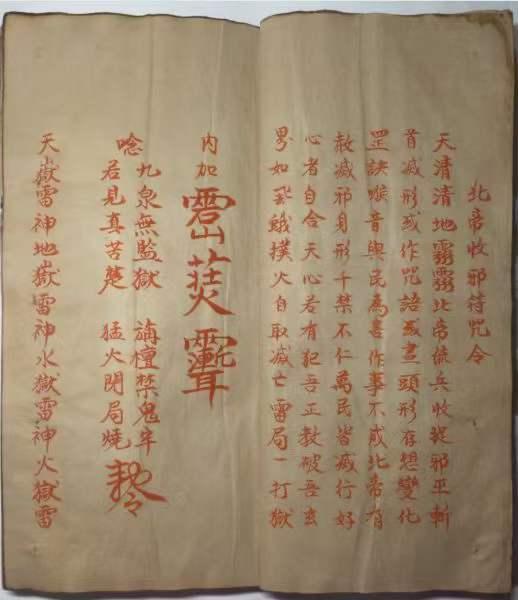 北帝收邪符咒令
天清清地霧霧北帝統兵收捉邪巫斬
首滅形或作咒語或畫頭形存想變化
罡訣喉音與民為害作事不成北帝有
敕滅邪身形千禁不仁萬民皆滅行好
心者自合天心若有犯吾正教破吾玄
界如飛蛾撲火自取滅亡雷局一打獄
內加
唸
九泉無監獄 旃檀禁鬼牢
若見真苦楚 猛火閉局燒
天嶽雷神地嶽雷神水獄雷神火獄雷